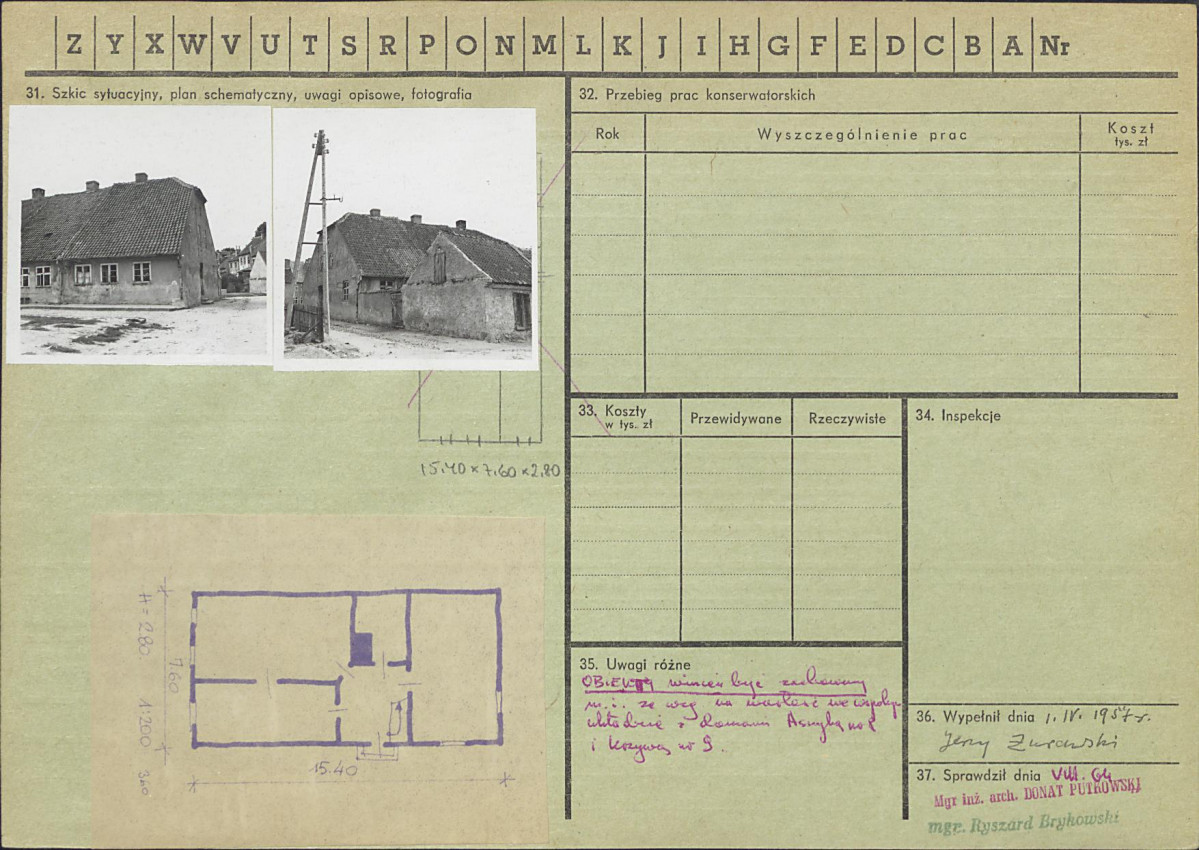 Z Y X W V U T S R P O N M L K J I H G F E D C B A Nr
31. Szkic sytuacyjny, plan schematyczny, uwagi opisowe, fotografia
15.40 × 7.60 × 2.80
H = 2.80. 1:200
7.60
15.40
32. Przebieg prac konserwatorskich
Rok
Wyszczególnienie prac
Koszt
tys. zł
33. Koszty
w tys. zł
Przewidywane
Rzeczywiste
34. Inspekcje
35. Uwagi różne
OBIEKT winien być zachowany
m.i. ze wzg na wartość we wspóln.
układzie z domami Asnyka no
i Krzywą no 9.
36. Wypełnił dnia 1. IV. 1957 r.
Jerzy Żurawski
37. Sprawdził dnia VIII. 64
Mgr inż. arch. DONAT PUTKOWSKI
mgr. Ryszard Brykowski